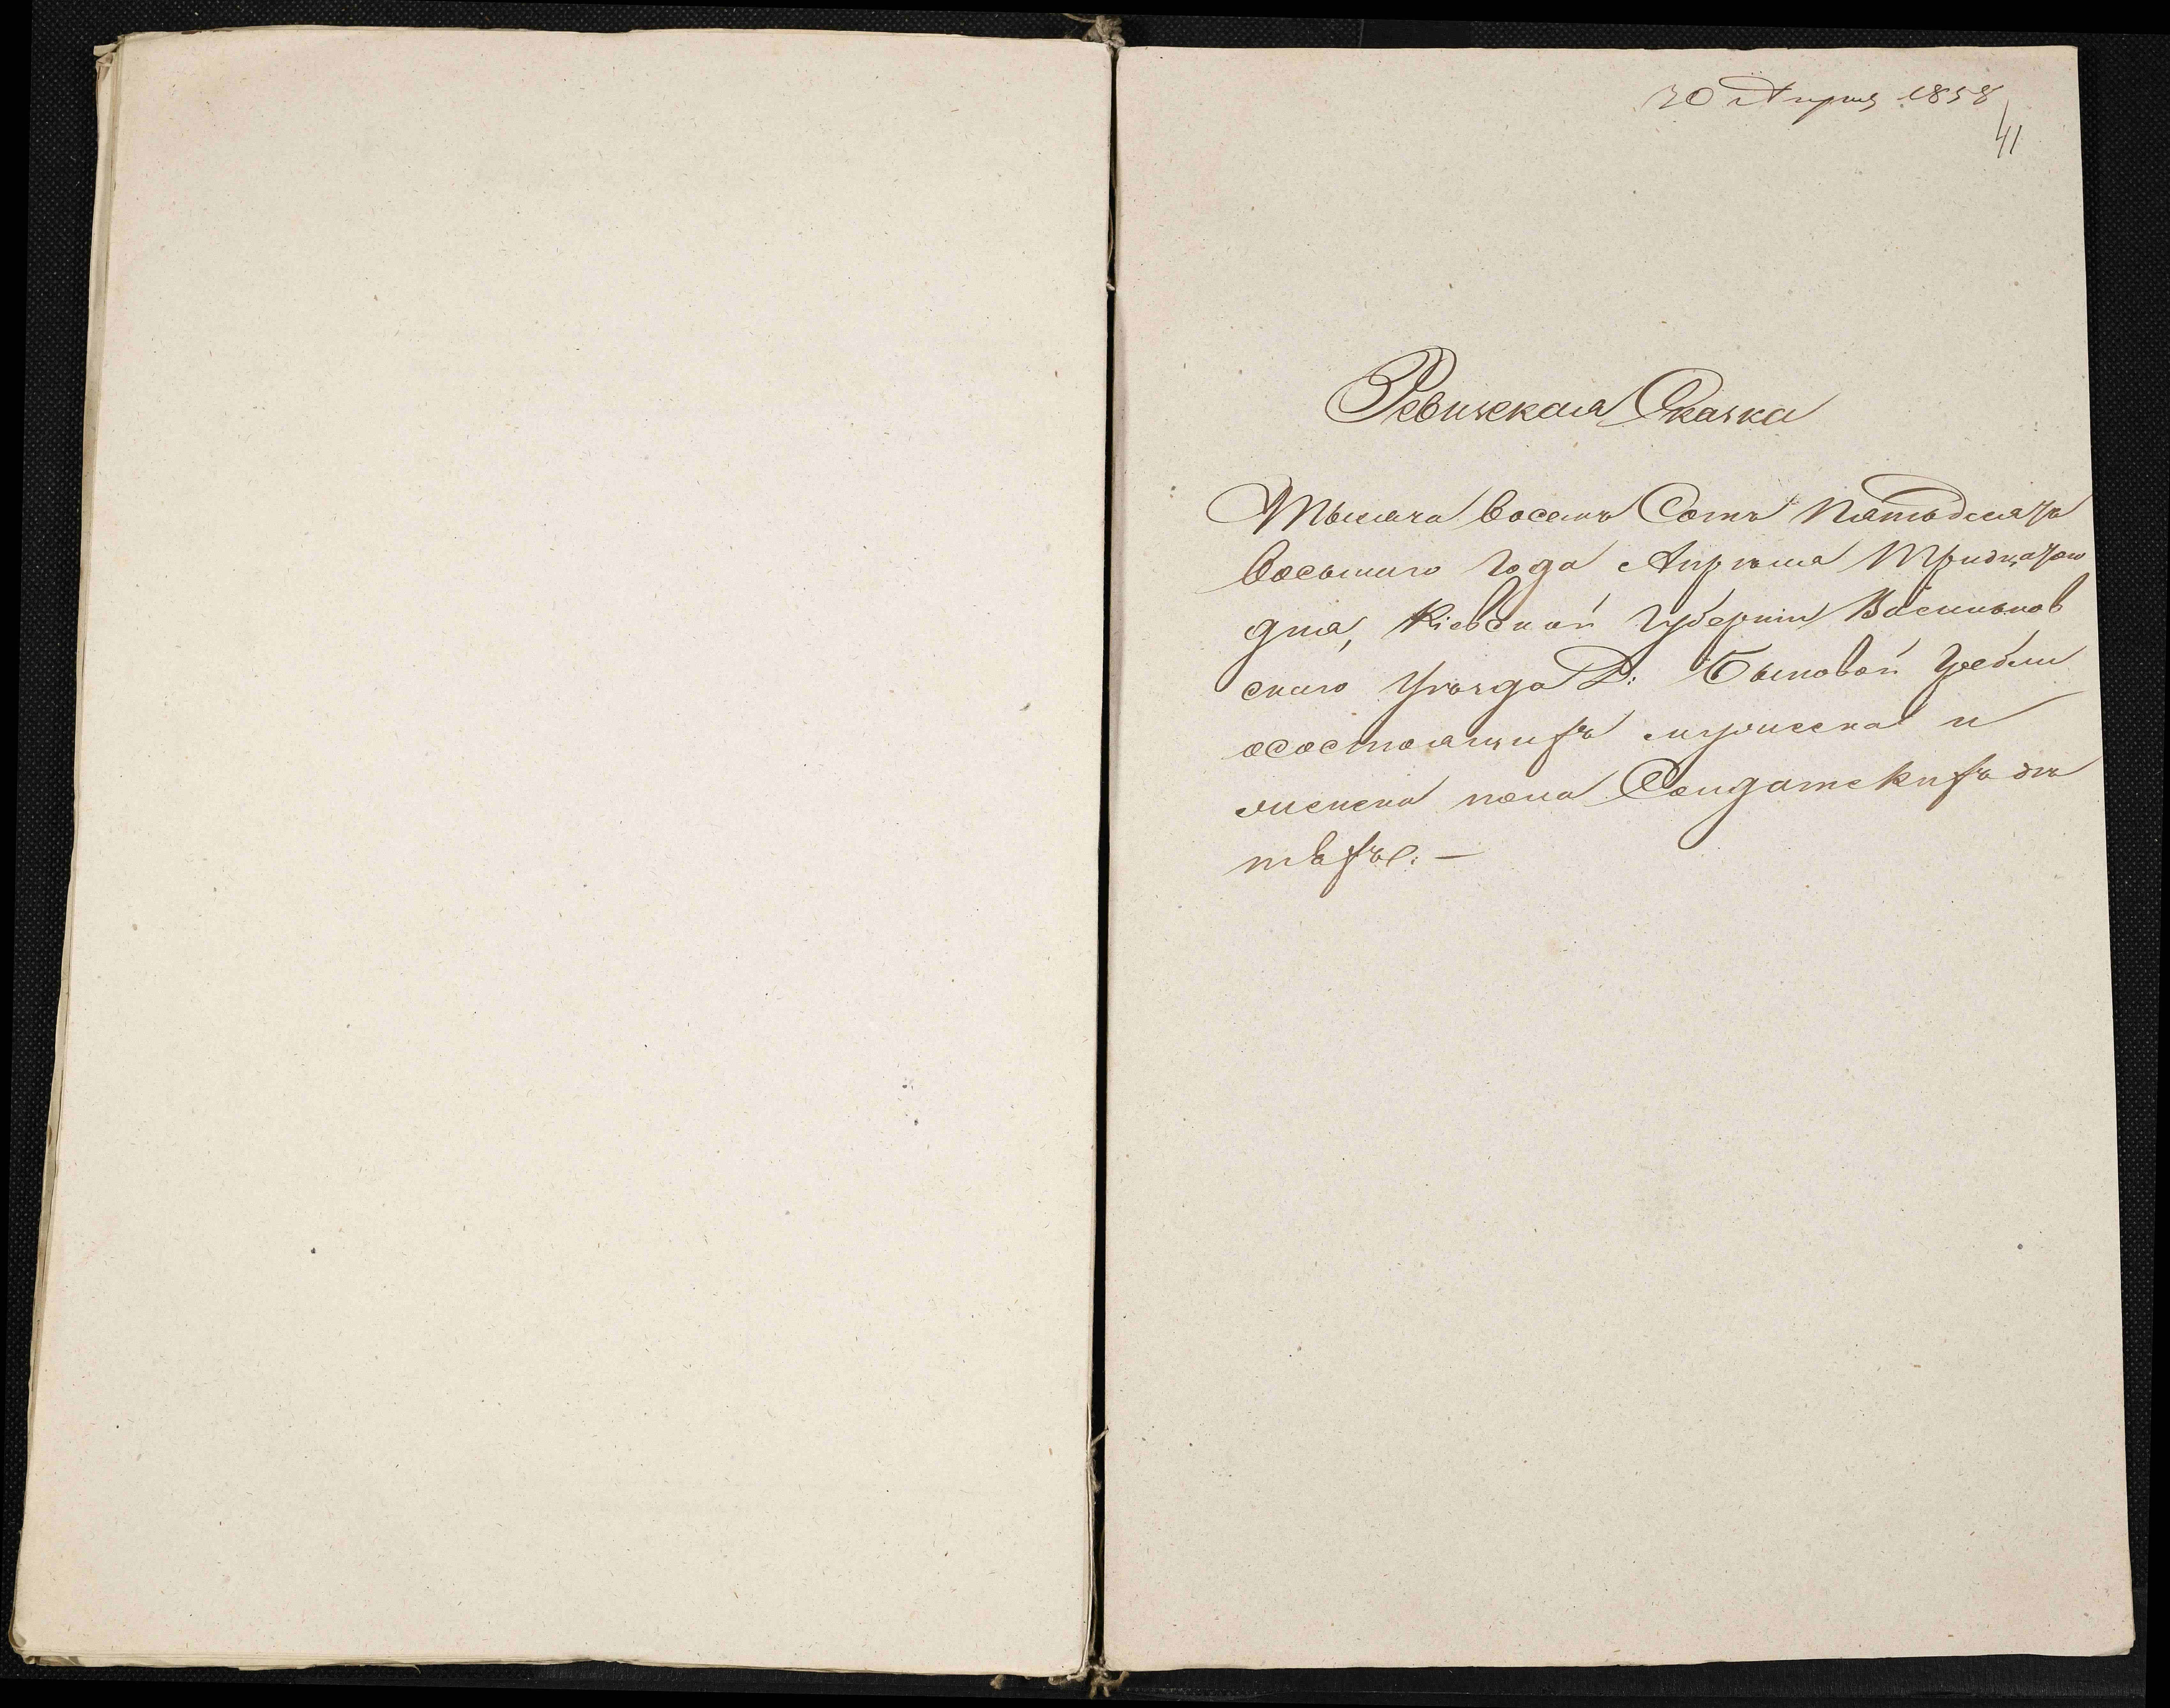 30 Апреля 1858
41
Ревизская Сказка
Тысяча восемь Сотъ Пятьдесятъ
Восьмого Года Апреля Тридцатого
дня, Кіевской Губерніи Васильков
ского Уѣзда Д: Быковой Гребли
осостоящихъ мужеска и
женска пола Солдатскихъ дѣ
тѣхъ. —